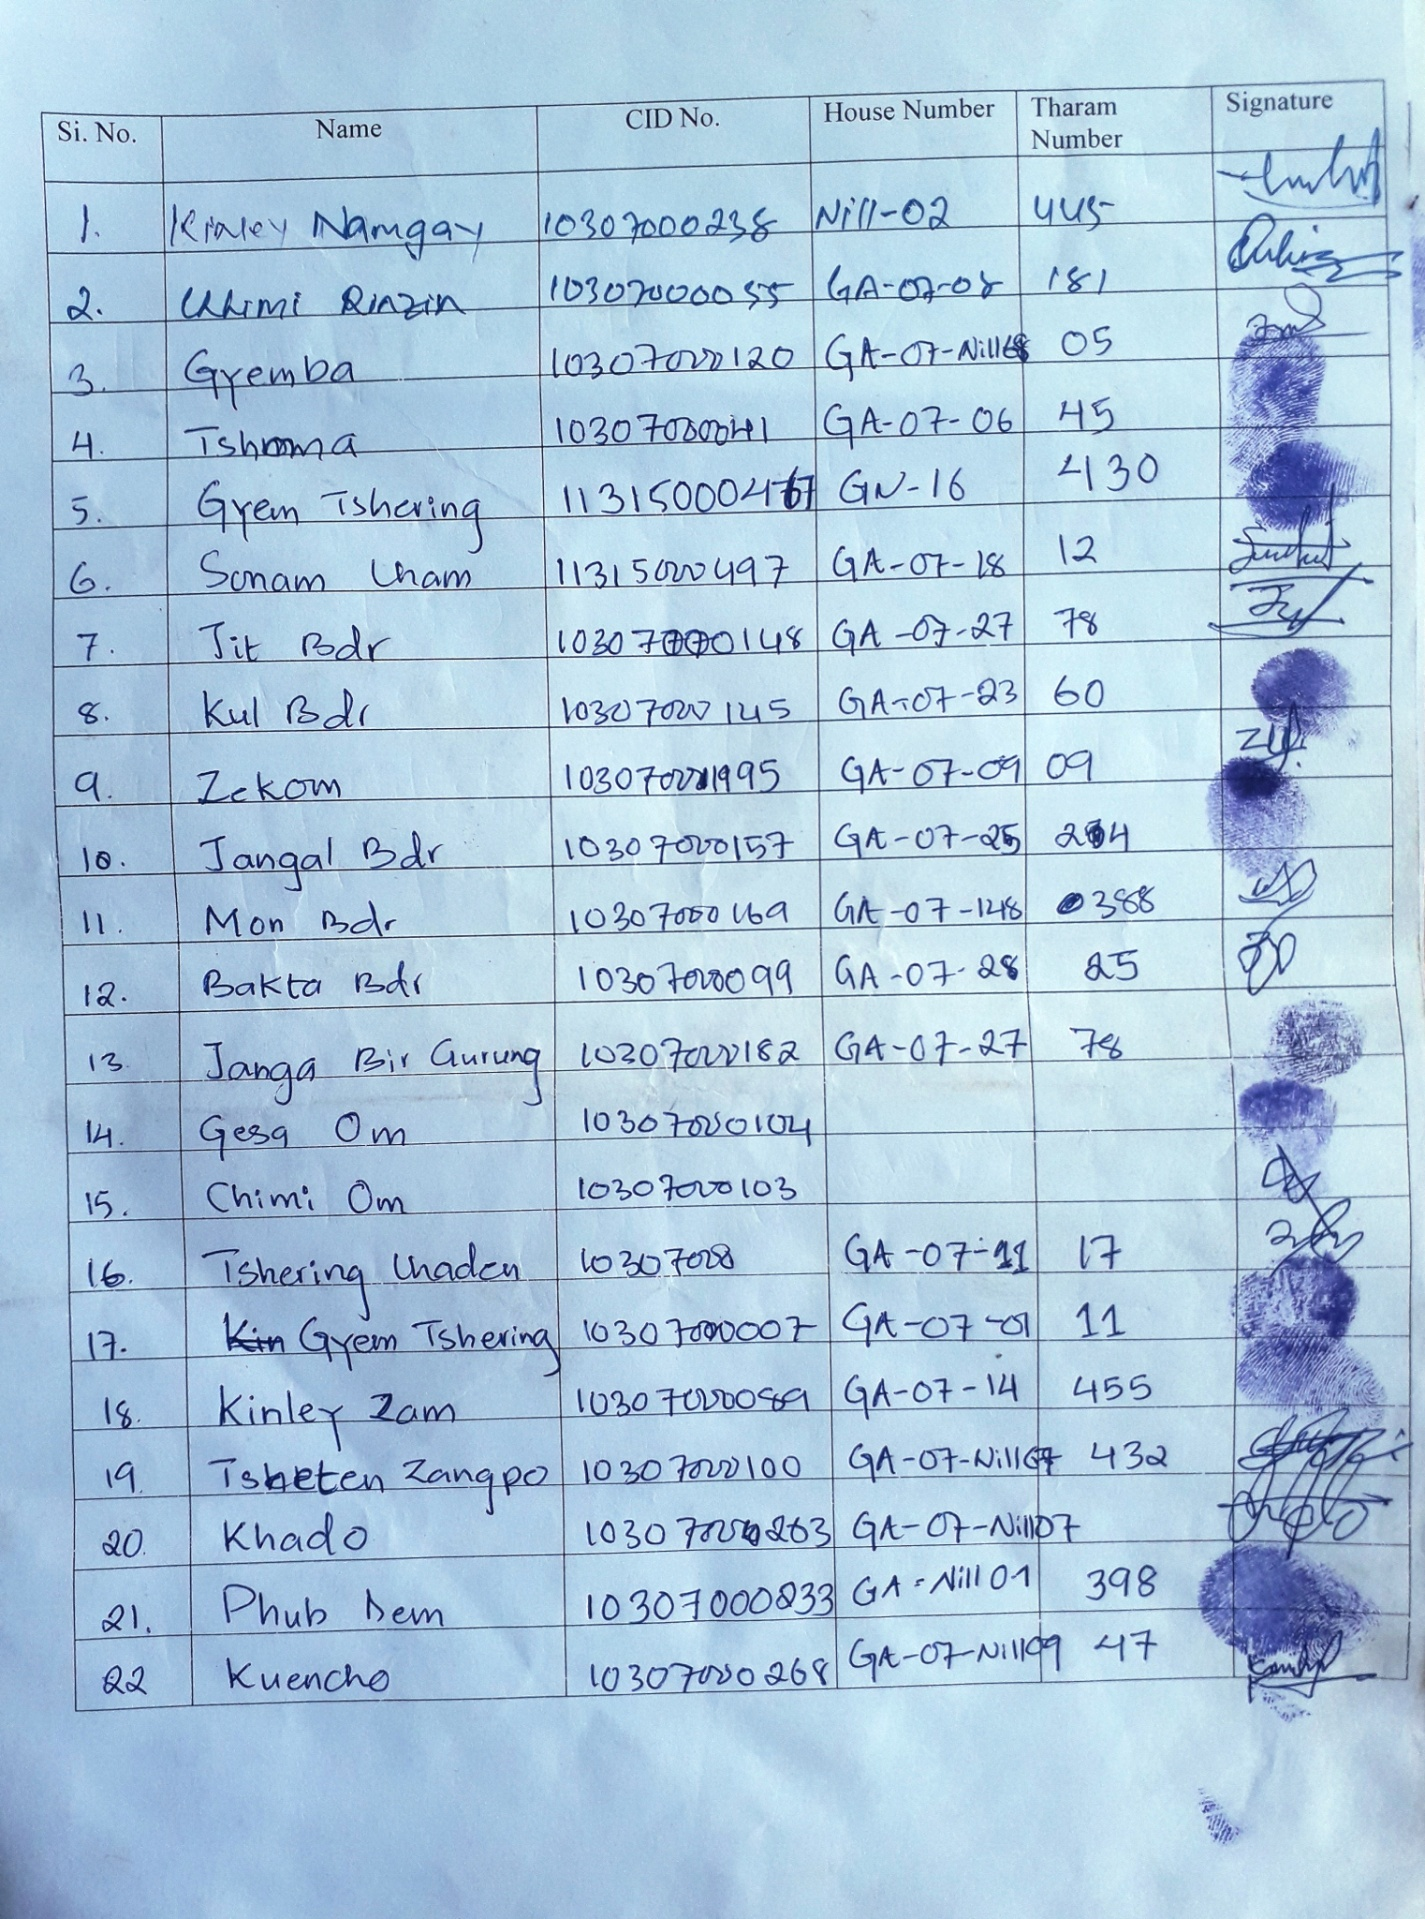 Si. No. Name CID No. House Number Tharam Number Signature
1. Kinley Namgay 10307000238 Nill-02 445
2. Chimi Rinzin 10307000055 GA-07-08 181
3. Gyemba 10307000120 GA-07-Nill 05
4. Tshoma 10307000041 GA-07-06 45
5. Gyem Tshering 11315000467 GN-16 430
6. Sonam Lham 11315000497 GA-07-18 12
7. Jit Bdr 10307000148 GA-07-27 78
8. Kul Bdr 10307000145 GA-07-23 60
9. Zekom 10307001995 GA-07-09 09
10. Jangal Bdr 10307000157 GA-07-25
11. Mon Bdr 10307000169 GA-07-128 388
12. Bakta Bdr 10307000099 GA-07-28 25
13. Janga Bir Gurung 10307000182 GA-07-27 78
14. Gesa Om 10307000104
15. Chimi Om 10307000103
16. Tshering Lhaden 1030700 GA-07-11 17
17. Kin Gyem Tshering 10307000007 GA-07-01 11
18. Kinley Zam 10307000089 GA-07-14 455
19. Tsheten Zangpo 10307000100 GA-07-Nill07 432
20. Khado 10307000263 GA-07-Nill07
21. Phub Dem 10307000233 GA-Nill 01 398
22 Kuencho 10307000268 GA-07-Nill09 47